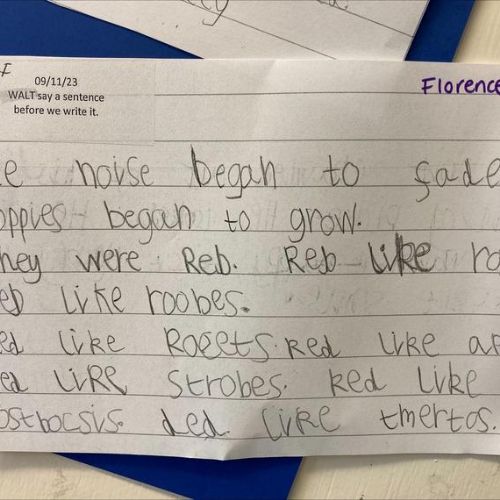 09/11/23
WALT say a sentence
before we write it.
Florence
e noise began to fade
oppies began to grow.
hey were Reb. Reb like ro
ed like roobes.
ed like Roeets. Red like ap
ed like strobes. Red like
ostbocsis. ded like tmertos.